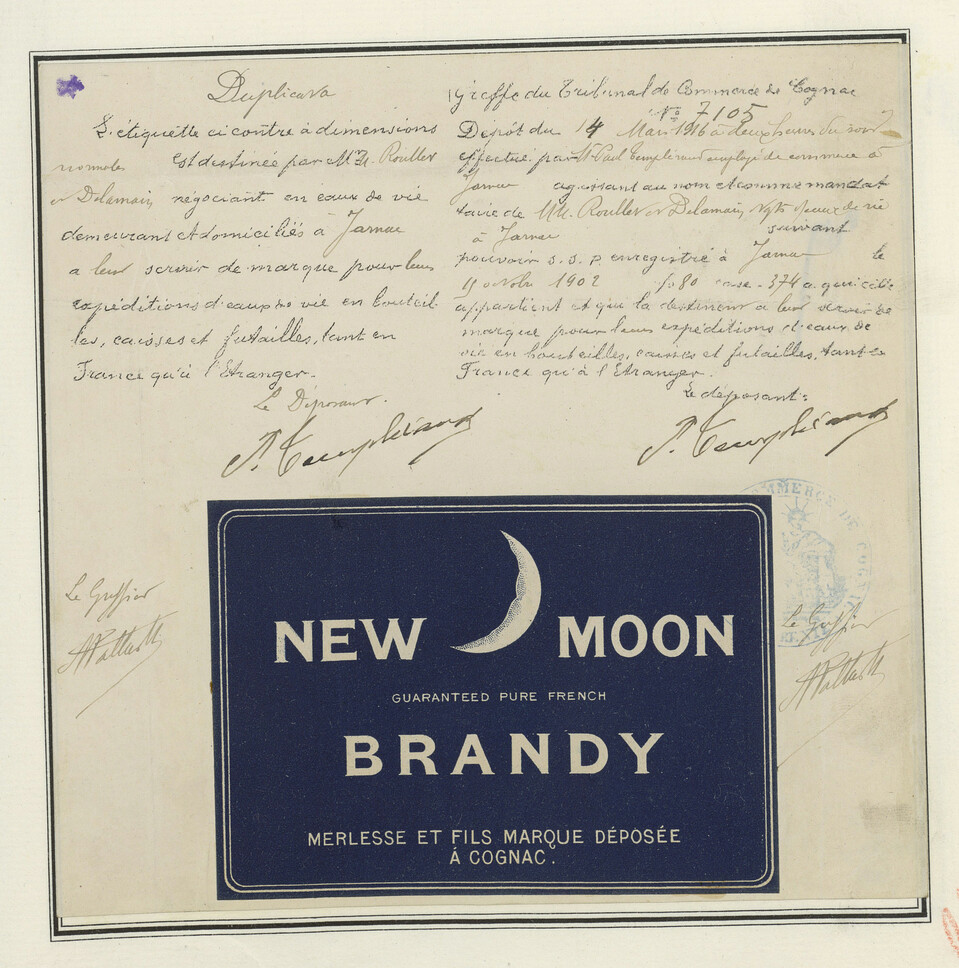 Duplicata
L'étiquette ci contre à dimensions
normales est destinée par MM. Roullet
et Delamain, négociant en eaux de vie
demeurant et domiciliés à Jarnac
a leur servir de marque pour leurs
expéditions d'eaux de vie en bouteil
les, caisses et futailles, tant en
France qu'à l'Etranger.
Le Déposant.
P. Templéraud
Greffe du Tribunal de Commerce de Cognac
No 7105
Dépôt du 14 Mars 1916 à deux heures du soir
effectué par M. Paul employé de commerce à
Jarnac agissant au nom et comme mandat
taire de MM. Roullet et Delamain, Ngts d'eaux de vie
à Jarnac suivant
pouvoir s.s.p. enregistré à Jarnac le
11 octobre 1902 fo 80 case 374 a qui celle
appartient et qui la destinent a leur servir de
marque pour leurs expéditions d'eaux de
vie en bouteilles, caisses et futailles, tant en
France qu'à l'Etranger.
Le déposant:
P. Templéraud
Le Greffier
Le Greffier
COMMERCE DE COGNAC
NEW MOON
GUARANTEED PURE FRENCH
BRANDY
MERLESSE ET FILS MARQUE DÉPOSÉE
À COGNAC.